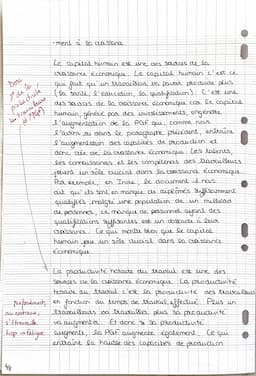 -ment à la croissance
Le capital humain est une des sources de la
croissance économique. Le capital humain c'est ce
qui fait qu'un travailleur va pouvoir produire plus
(la santé, l'éducation, la qualification). C'est une
des sources de la croissance économique car le capital
humain, généré par des investissements, engendre
l'augmentation de la PGF qui, comme nous
l'avons vu dans le paragraphe précédent, entraîne
l'augmentation des capacités de production et
donc crée de la croissance économique. Les talents,
les connaissances et les compétences des travailleurs
jouent un rôle crucial dans la croissance économique.
Par exemple, en Inde, le document 4 nous
dit qu'ils sont en manque de diplômés suffisamment
qualifiés malgré une population de un milliard
de personnes, ce manque de personnel ayant des
qualifications suffisantes est un obstacle à leur
croissance. Ce qui montre bien que le capital
humain joue un rôle crucial dans la croissance
économique.
La productivité horaire du travail est une des
sources de la croissance économique. La productivité
horaire du travail c'est la productivité des travailleurs
en fonction du temps de travail effectué. Plus un
travailleur va travailler plus sa productivité
va augmenter. Et donc si sa productivité
augmente, la PGF augmente également. Ce qui
entraîne la hausse des capacités de production
Donc
de la
productivité
des travailleurs
au contraire,
s'il travaille
trop → fatigue
4/8